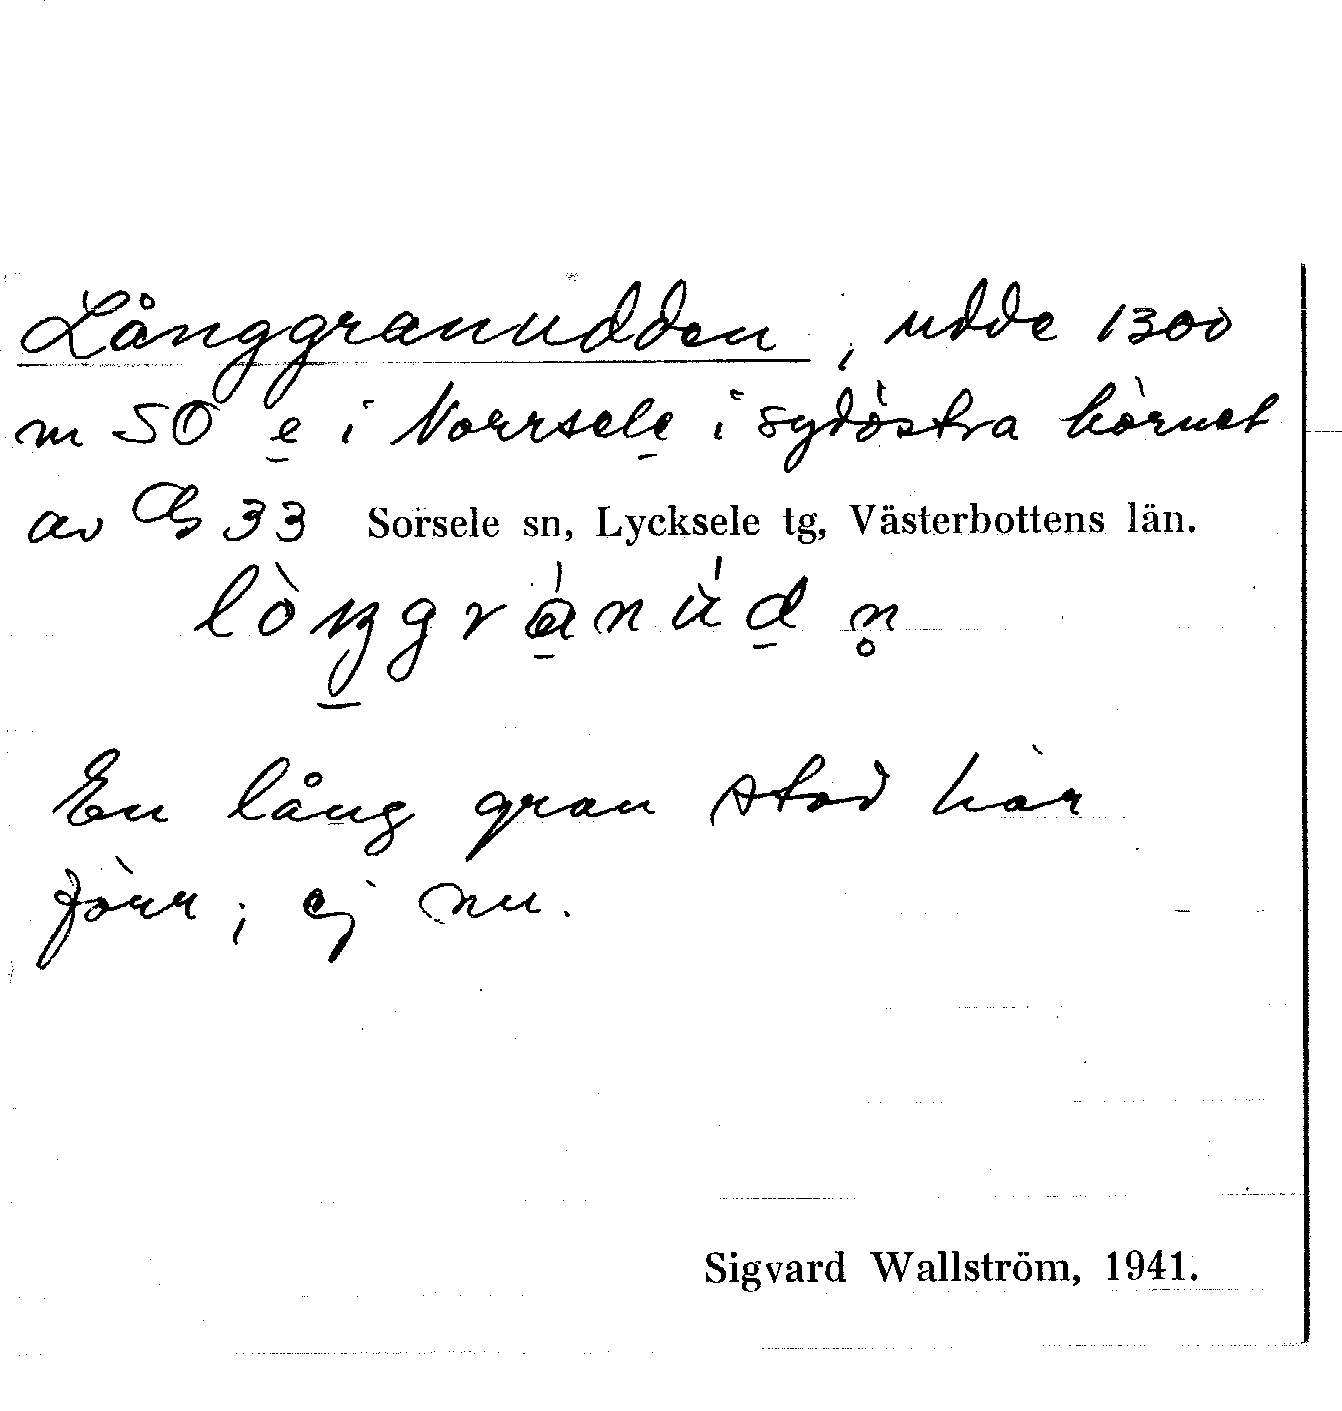 Långgranudden, udde 1300
m SO e i Norrsele i sydöstra hörnet
av 33 Sorsele sn, Lycksele tg, Västerbottens län.
En lång gran stod här
förr; ej nu.
Sigvard Wallström, 1941.